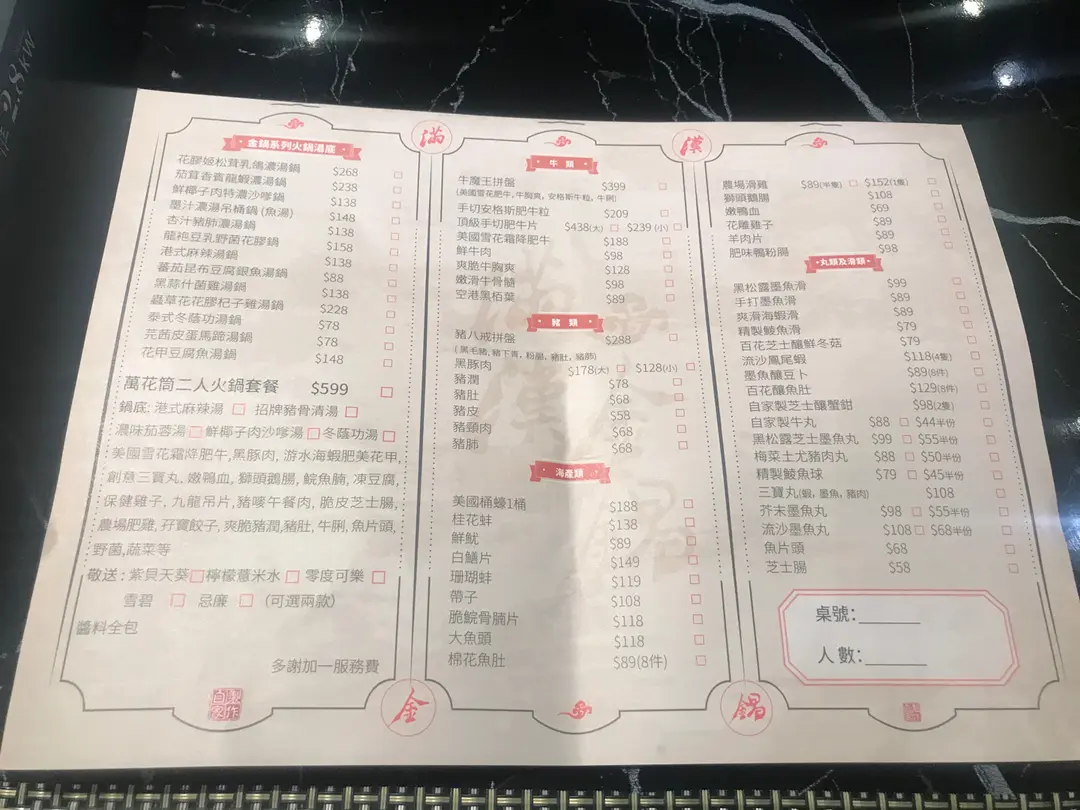 2.8KW
滿
漢
金
鍋
金鍋系列火鍋湯底
花膠姬松茸乳鴿濃湯鍋 $268
茄茸香賓龍蝦濃湯鍋 $238
鮮椰子肉特濃沙嗲鍋 $138
墨汁濃湯吊桶鍋 (魚湯) $148
杏汁豬肺濃湯鍋 $138
龍袍豆乳野菌花膠鍋 $158
港式麻辣湯鍋 $138
蕃茄昆布豆腐銀魚湯鍋 $88
黑蒜什菌雞湯鍋 $138
蟲草花花膠杞子雞湯鍋 $228
泰式冬蔭功湯鍋 $78
芫茜皮蛋馬蹄湯鍋 $78
花甲豆腐魚湯鍋 $148
萬花筒二人火鍋套餐 $599
鍋底: 港式麻辣湯 招牌豬骨清湯
濃味茄蓉湯 鮮椰子肉沙嗲湯 冬蔭功湯
美國雪花霜降肥牛,黑豚肉, 游水海蝦肥美花甲,
創意三寶丸, 嫩鴨血, 獅頭鵝腸, 鯇魚腩, 凍豆腐,
保健雞子, 九龍吊片, 豬嘜午餐肉, 脆皮芝士腸,
農場肥雞, 孖寶餃子, 爽脆豬潤,豬肚, 牛脷, 魚片頭,
野菌,蔬菜等
敬送 : 紫貝天葵 檸檬薏米水 零度可樂
雪碧 忌廉 (可選兩款)
醬料全包
多謝加一服務費
牛 類
牛魔王拼盤 $399
(美國雪花肥牛, 牛胸爽, 安格斯牛粒, 牛脷)
手切安格斯肥牛粒 $209
頂級手切肥牛片 $438(大) $239 (小)
美國雪花霜降肥牛 $188
鮮牛肉 $98
爽脆牛胸爽 $128
嫩滑牛骨髓 $98
空港黑栢葉 $89
豬 類
豬八戒拼盤 $288
( 黑毛豬, 豬下青, 粉腸, 豬肚, 豬肺)
黑豚肉 $178(大) $128(小)
豬潤 $78
豬肚 $68
豬皮 $58
豬頸肉 $68
豬肺 $68
海產類
美國桶蠔1桶 $188
桂花蚌 $138
鮮魷 $89
白鱔片 $149
珊瑚蚌 $119
帶子 $108
脆鯇骨腩片 $118
大魚頭 $118
棉花魚肚 $89(8件)
農場滑雞 $89(半隻) $152(1隻)
獅頭鵝腸 $108
嫩鴨血 $69
花雕雞子 $89
羊肉片 $89
肥味鴨粉腸 $98
丸類及滑類
黑松露墨魚滑 $99
手打墨魚滑 $89
爽滑海蝦滑 $89
精製鯪魚滑 $79
百花芝士釀鮮冬菇 $79
流沙鳳尾蝦 $118(4隻)
墨魚釀豆卜 $89(8件)
百花釀魚肚 $129(8件)
自家製芝士釀蟹鉗 $98(2隻)
自家製牛丸 $88 $44半份
黑松露芝士墨魚丸 $99 $55半份
梅菜土尤豬肉丸 $88 $50半份
精製鯪魚球 $79 $45半份
三寶丸(蝦, 墨魚, 豬肉) $108
芥末墨魚丸 $98 $55半份
流沙墨魚丸 $108 $68半份
魚片頭 $68
芝士腸 $58
桌號:
人 數: